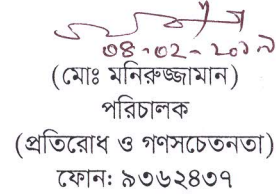 ০৪-০২-২০১৯
(মোঃ মনিরুজ্জামান)
পরিচালক
(প্রতিরোধ ও গণসচেতনতা)
ফোন: ৯৩৬২৪৩৭